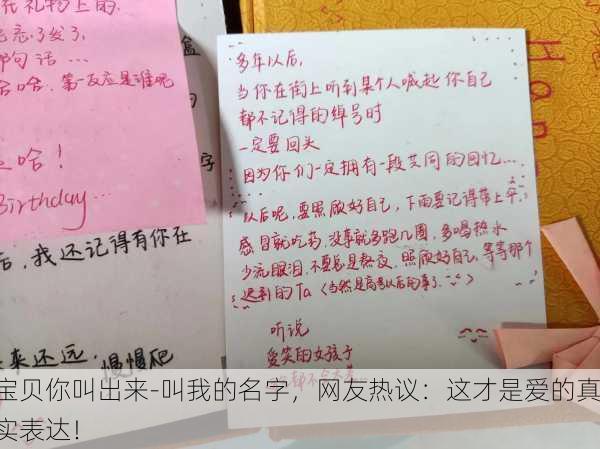 礼物上的.
忘了发了,
那句话...
哈哈, 第一反应是谁呢
是啥!
Birthday...
后, 我还记得有你在
未来还远, 慢慢爬
多年以后,
当你在街上听到某个人喊起你自己
都不记得的绰号时
一定要回头
因为你们一定拥有一段共同的回忆...
以后呢, 要照顾好自己, 下雨要记得带上伞,
感冒就吃药, 没事就多跑几圈, 多喝热水
少流眼泪, 不要总是熬夜, 照顾好自己, 等等那个
迟到的Ta (当然是高考以后的事了.
听说
爱笑的女孩子
都不会太差
宝贝你叫出来-叫我的名字，网友热议：这才是爱的真
实表达！